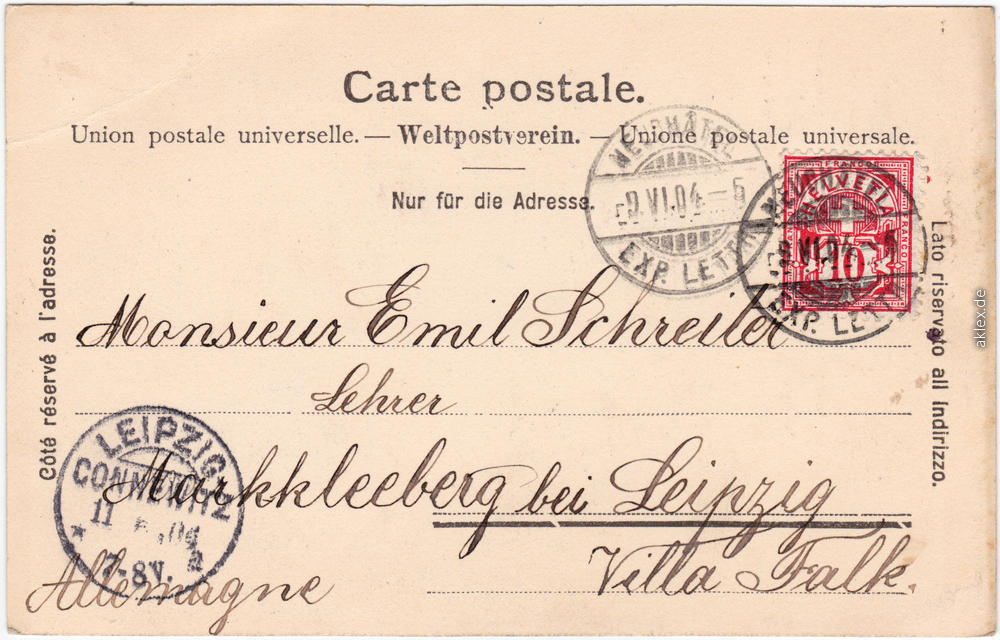 Carte postale.
Union postale universelle. — Weltpostverein. — Unione postale universale.
Nur für die Adresse.
Côté réservé à l'adresse.
Lato riservato all indirizzo.
EXP. LETT
VI.04 — 5
FRANCO
HELVETIA
FRANCO
10
VI.04
EXP. LET
Monsieur Emil Schreiter
Lehrer
Markkleeberg bei Leipzig
Villa Falk.
Allemagne
LEIPZIG
CONNEWITZ
11
7-8V.
aklex.de